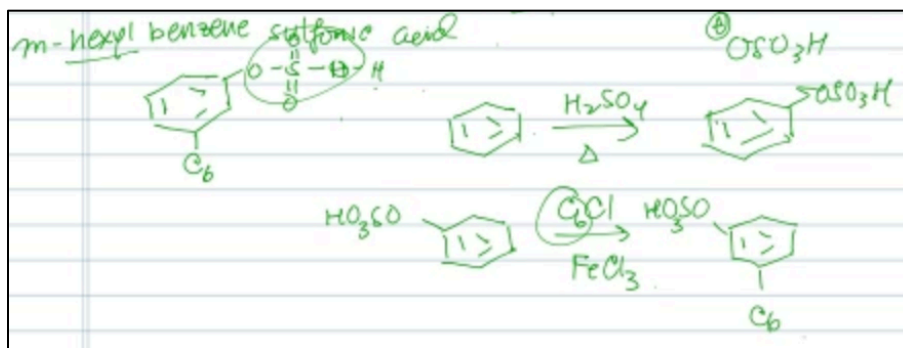 m-hexyl benzene sulfonic acid
⊕
OSO₃H
O
O-S-O-H
O
C₆
H₂SO₄
Δ
OSO₃H
HO₃SO
C₆Cl
FeCl₃
HO₃SO
C₆